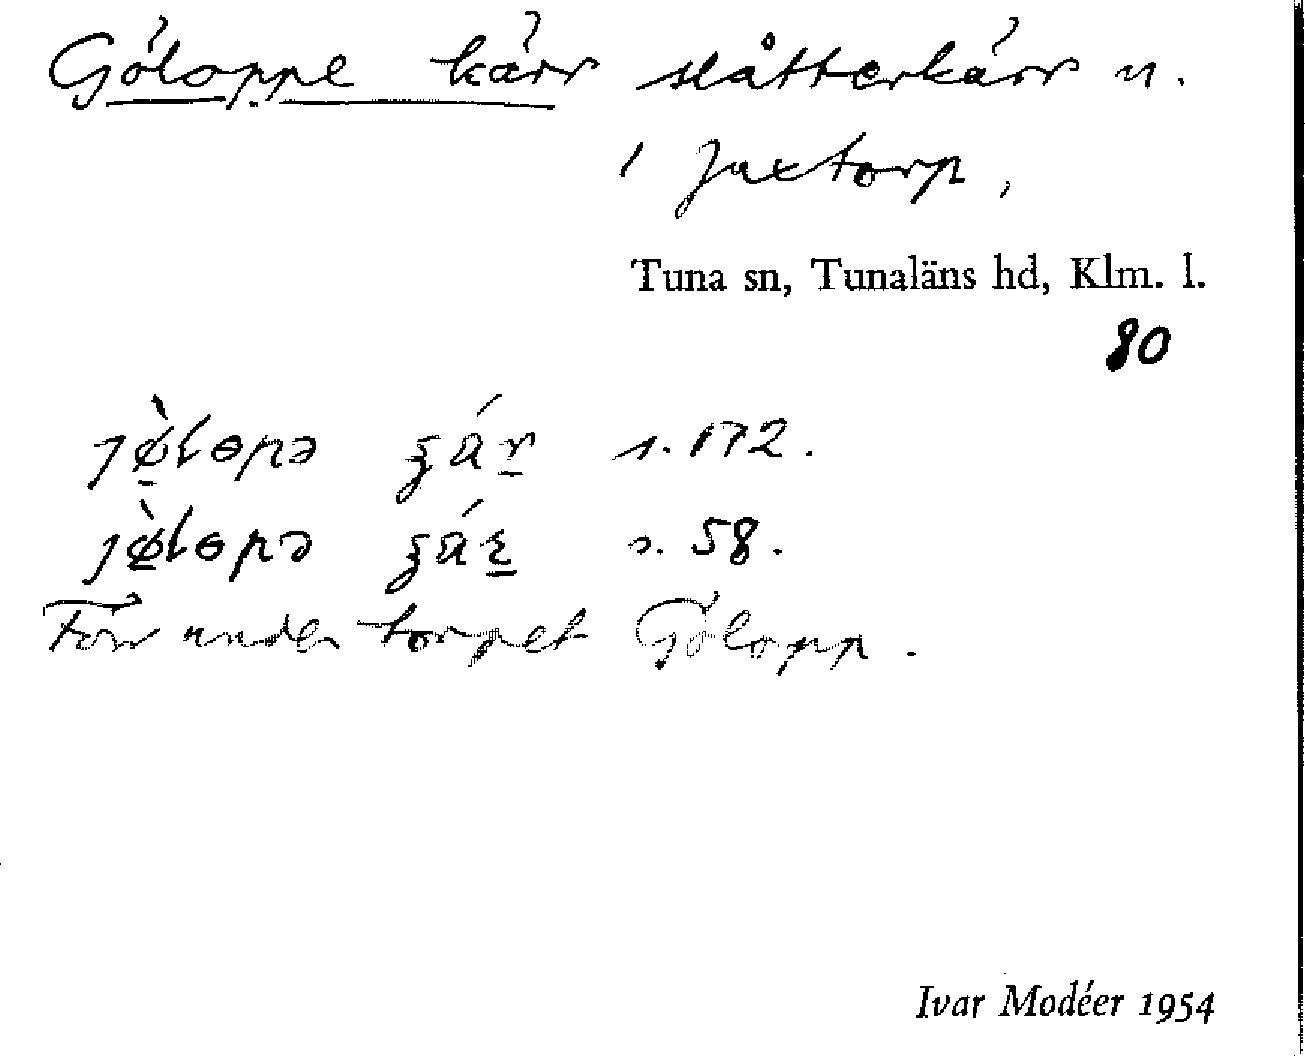 Göloppe kärr slåtterkärr n.
i Jaxtorp,
Tuna sn, Tunaläns hd, Klm. l.
80
s. 172.
s. 58.
Förr under torpet Gölopp.
Ivar Modéer 1954